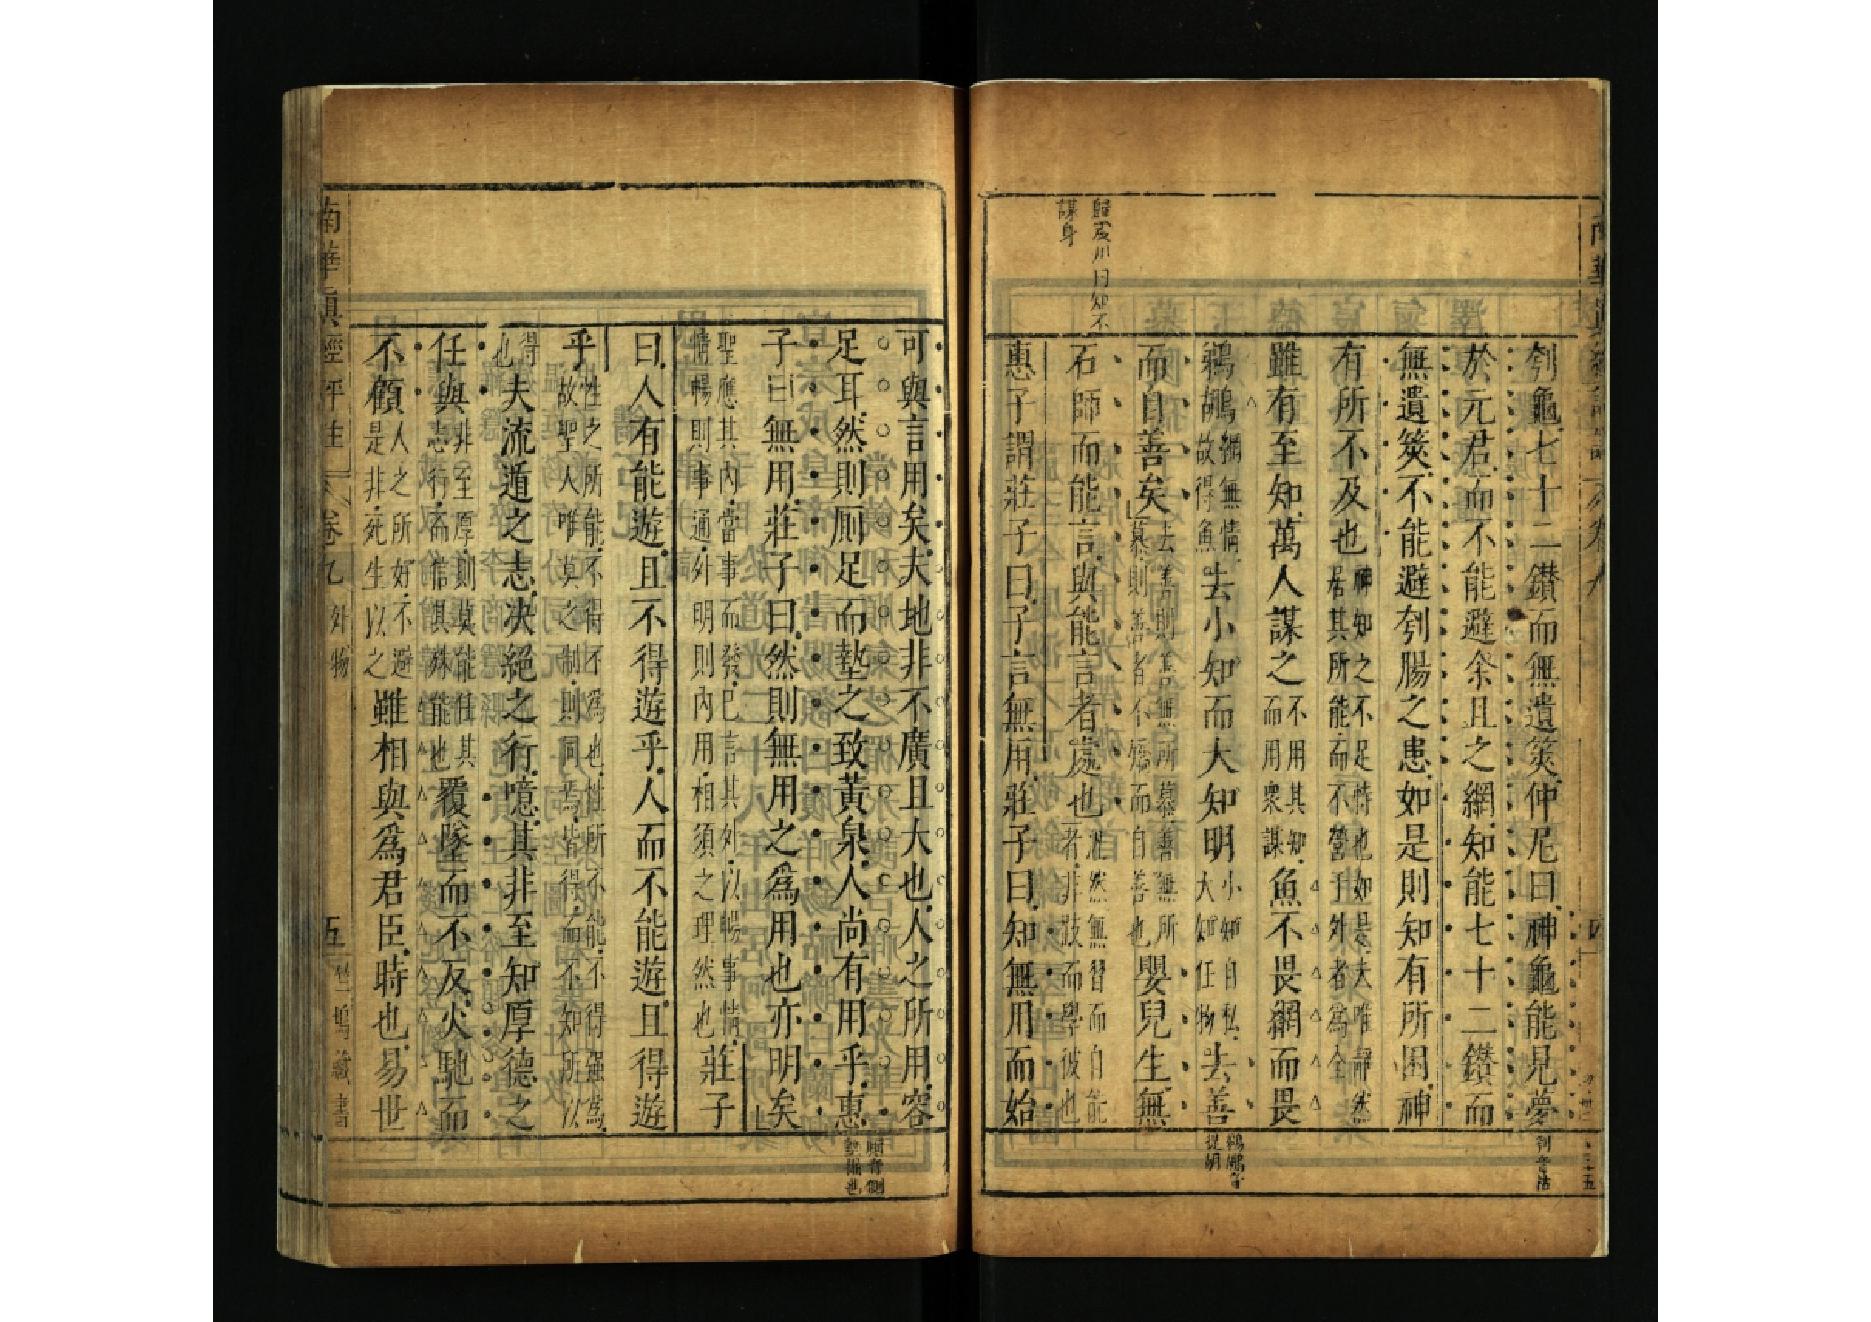 歸震川曰知不
謀身
刳龜七十二鑽而無遺筴仲尼曰神龜能見夢
於元君而不能避余且之網知能七十二鑽而
無遺筴不能避刳腸之患如是則知有所困神
有所不及也神知之不足恃也如是夫唯靜然
居其所能而不營於外者為全
雖有至知萬人謀之不用其知
而用衆謀魚不畏網而畏
鵜鶘網無情
故得魚去小知而大知明小知自私
大知任物去善
而自善矣去善則善無所慕善無所
慕則善者不矯而自善也嬰兒生無
石師而能言與能言者處也泯然無習而自能
者非跂而學彼也
惠子謂莊子曰子言無用莊子曰知無用而始
刳音枯
鵜鶘音
提胡
可與言用矣夫地非不廣且大也人之所用容
足耳然則厠足而墊之致黃泉人尚有用乎惠
子曰無用莊子曰然則無用之為用也亦明矣
聖應其內當事而發已言其外以暢事情
情暢則事通外明則內用相須之理然也莊子
曰人有能遊且不得遊乎人而不能遊且得遊
乎性之所能不得不為也性所不能不得強為
故聖人唯莫之制則同焉皆得而不知所以
得
也夫流遁之志决絕之行噫其非至知厚德之
任與非至厚則莫能任其
志行而信俱殊能也覆墜而不反火馳而
不顧人之所好不避
是非死生以之雖相與為君臣時也易世
厠音側
墊掘也
南華真經評註
卷九
外物
五
竺塢藏書